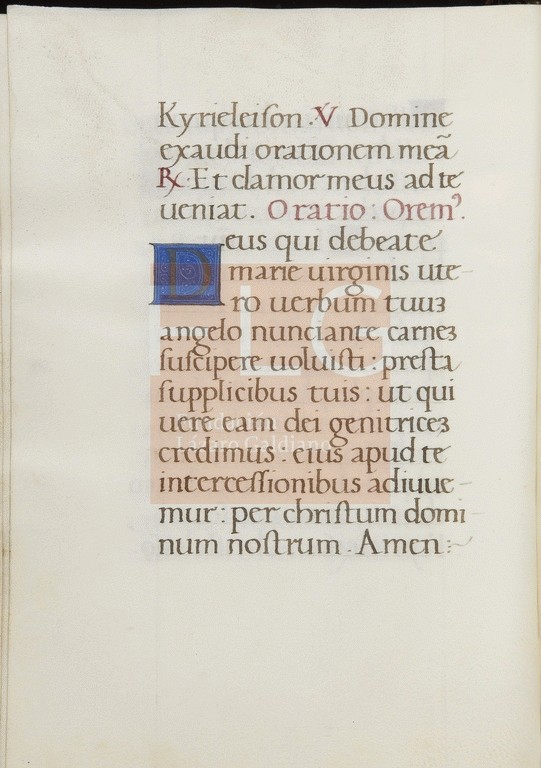 Kyrieleiſon ·V Domine
exaudi orationem meã
℟· Et clamor meus ad te
ueniat. Oratio: Oremꝰ.
Deus qui de beate
marie uirginis ute-
ro uerbum tuuȝ
angelo nunciante carneȝ
ſuſcipere uoluiſti: preſta
ſupplicibus tuis: ut qui
uere eam dei genitriceȝ
credimus: eius apud te
interceſſionibus adiuue-
mur: per chriſtum domi-
num noſtrum. Amen:~
FLG
Fundación
Lázaro Galdiano